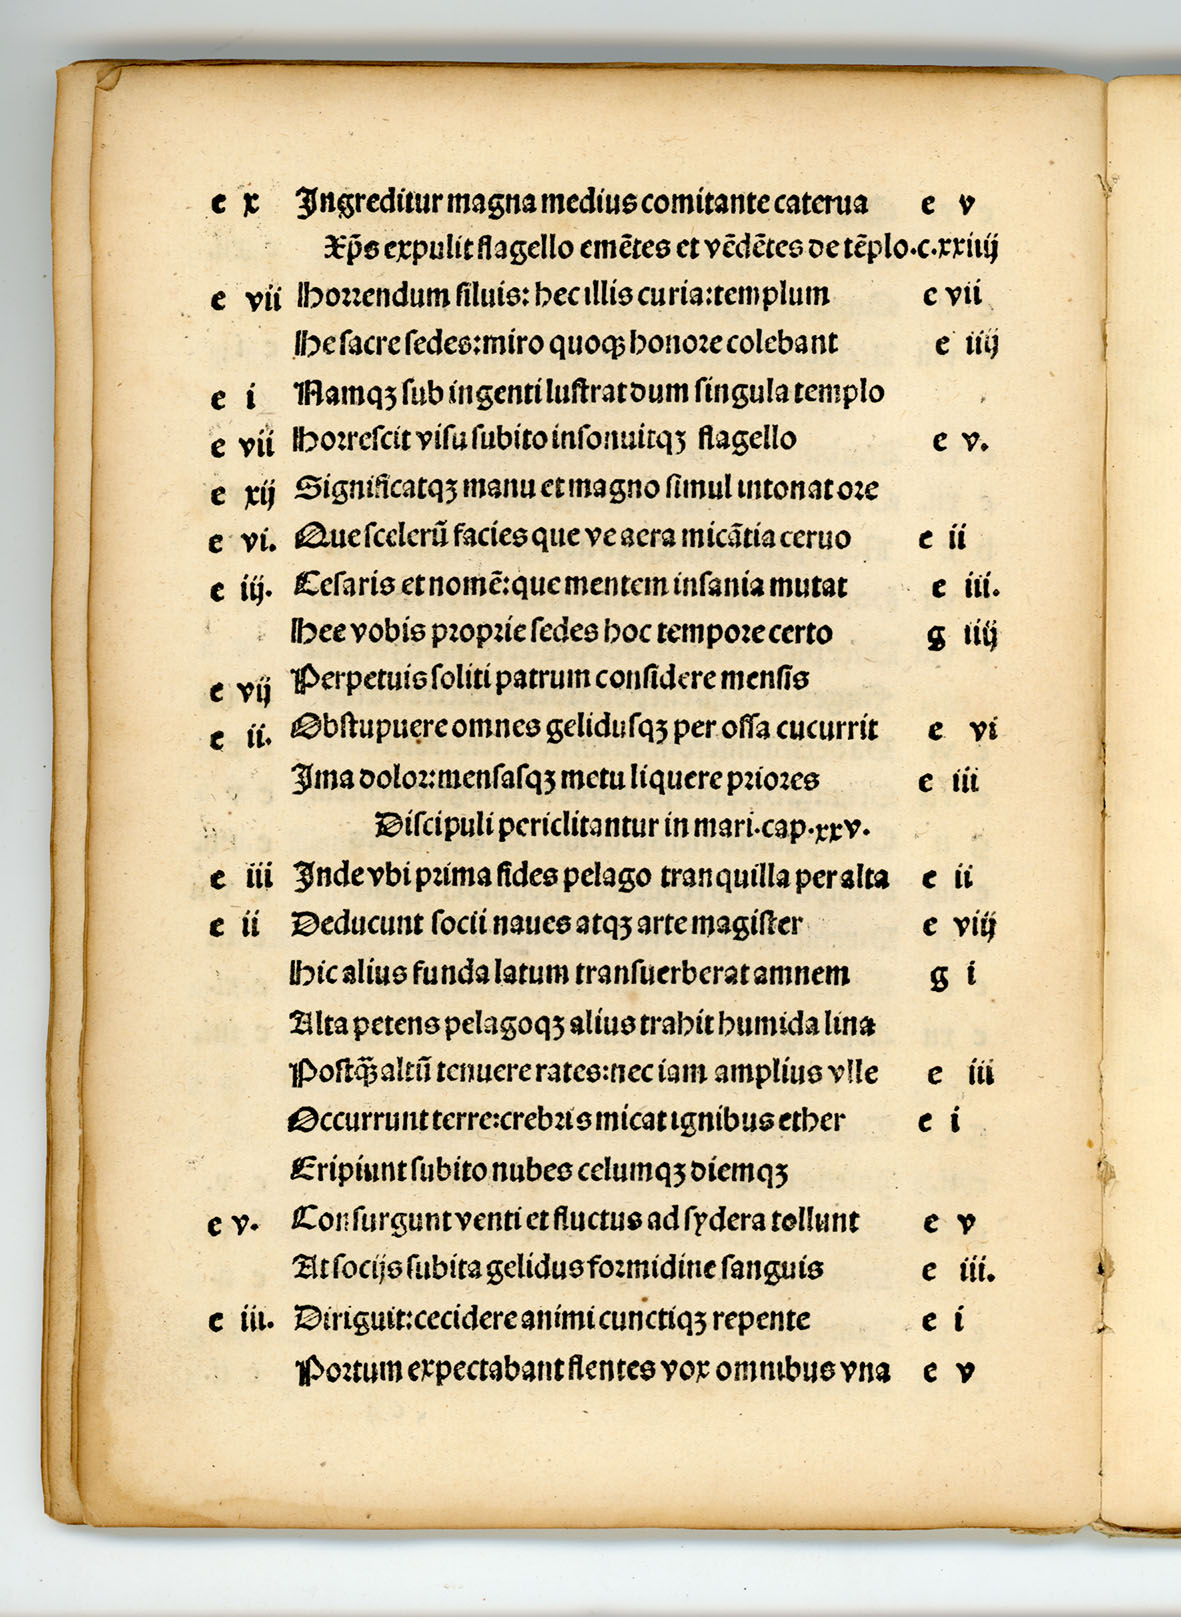 e x Ingreditur magna medius comitante caterua e v
Xp̄s expulit flagello emētes et vēdētes de tēplo.c.xxiiij
e vii Horrendum siluis: hec illis curia: templum e vii
He sacre sedes: miro quoqꝫ honore colebant e iiij
e i Namqꝫ sub ingenti lustrat dum singula templo
e vii Horrescit visu subito insonuitqꝫ flagello e v.
e xij Significatqꝫ manu et magno simul intonat ore
e vi. Que scelerū facies que ve aera micātia ceruo e ii
e iij. Cesaris et nomē: que mentem insania mutat e iii.
Hee vobis proprie sedes hoc tempore certo g iiij
e vij Perpetuis soliti patrum considere mensis
e ii. Obstupuere omnes gelidusqꝫ per ossa cucurrit e vi
Ima dolor: mensasqꝫ metu liquere priores e iii
Discipuli periclitantur in mari.cap.xxv.
e iii Inde vbi prima fides pelago tranquilla per alta e ii
e ii Deducunt socii naues atqꝫ arte magister e viij
Hic alius funda latum transuerberat amnem g i
Alta petens pelagoqꝫ alius trahit humida lina
Postq̄ altū tenuere rates: nec iam amplius vlle e iii
Occurrunt terre: crebris micat ignibus ether e i
Eripiunt subito nubes celumqꝫ diemqꝫ
e v. Consurgunt venti et fluctus ad sydera tollunt e v
At socijs subita gelidus formidine sanguis e iii.
e iii. Diriguit: cecidere animi cunctiqꝫ repente e i
Portum expectabant flentes vox omnibus vna e v